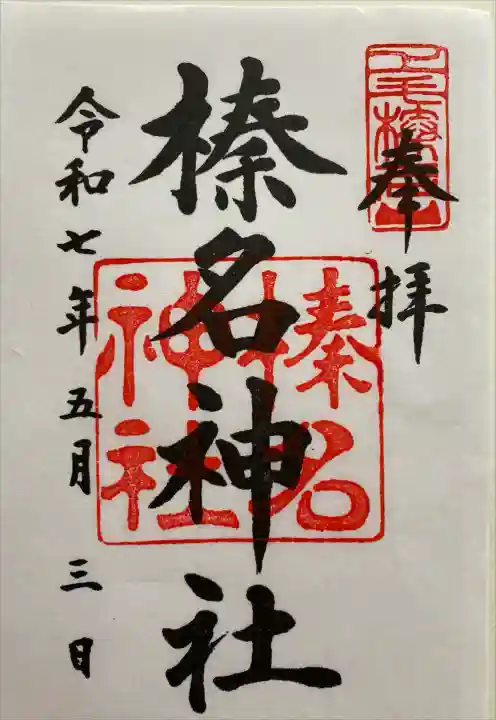 奉拝
上毛榛名山
榛名神社
榛名
神社
令和七年五月三日